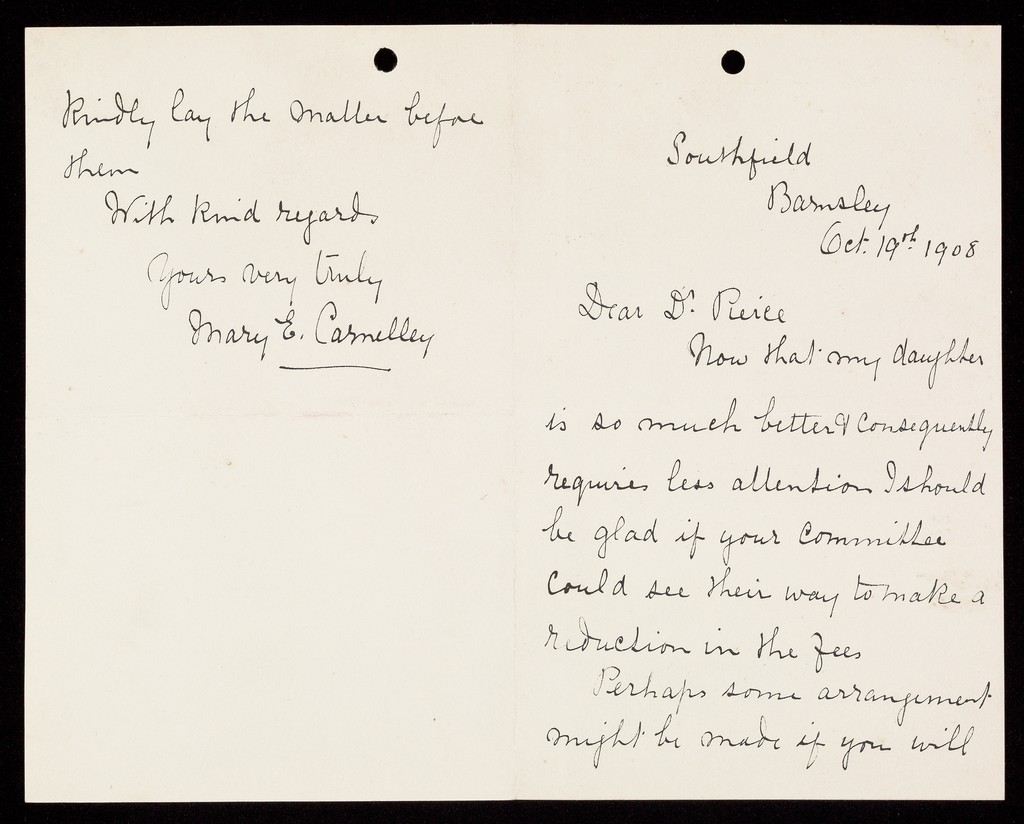 Southfield
Barnsley
Oct. 19th 1908
Dear Dr. Pierce
Now that my daughter
is so much better & consequently
requires less attention I should
be glad if your committee
could see their way to make a
reduction in the fees
Perhaps some arrangement
might be made if you will
kindly lay the matter before
them
With kind regards
Yours very truly
Mary E. Carnelley